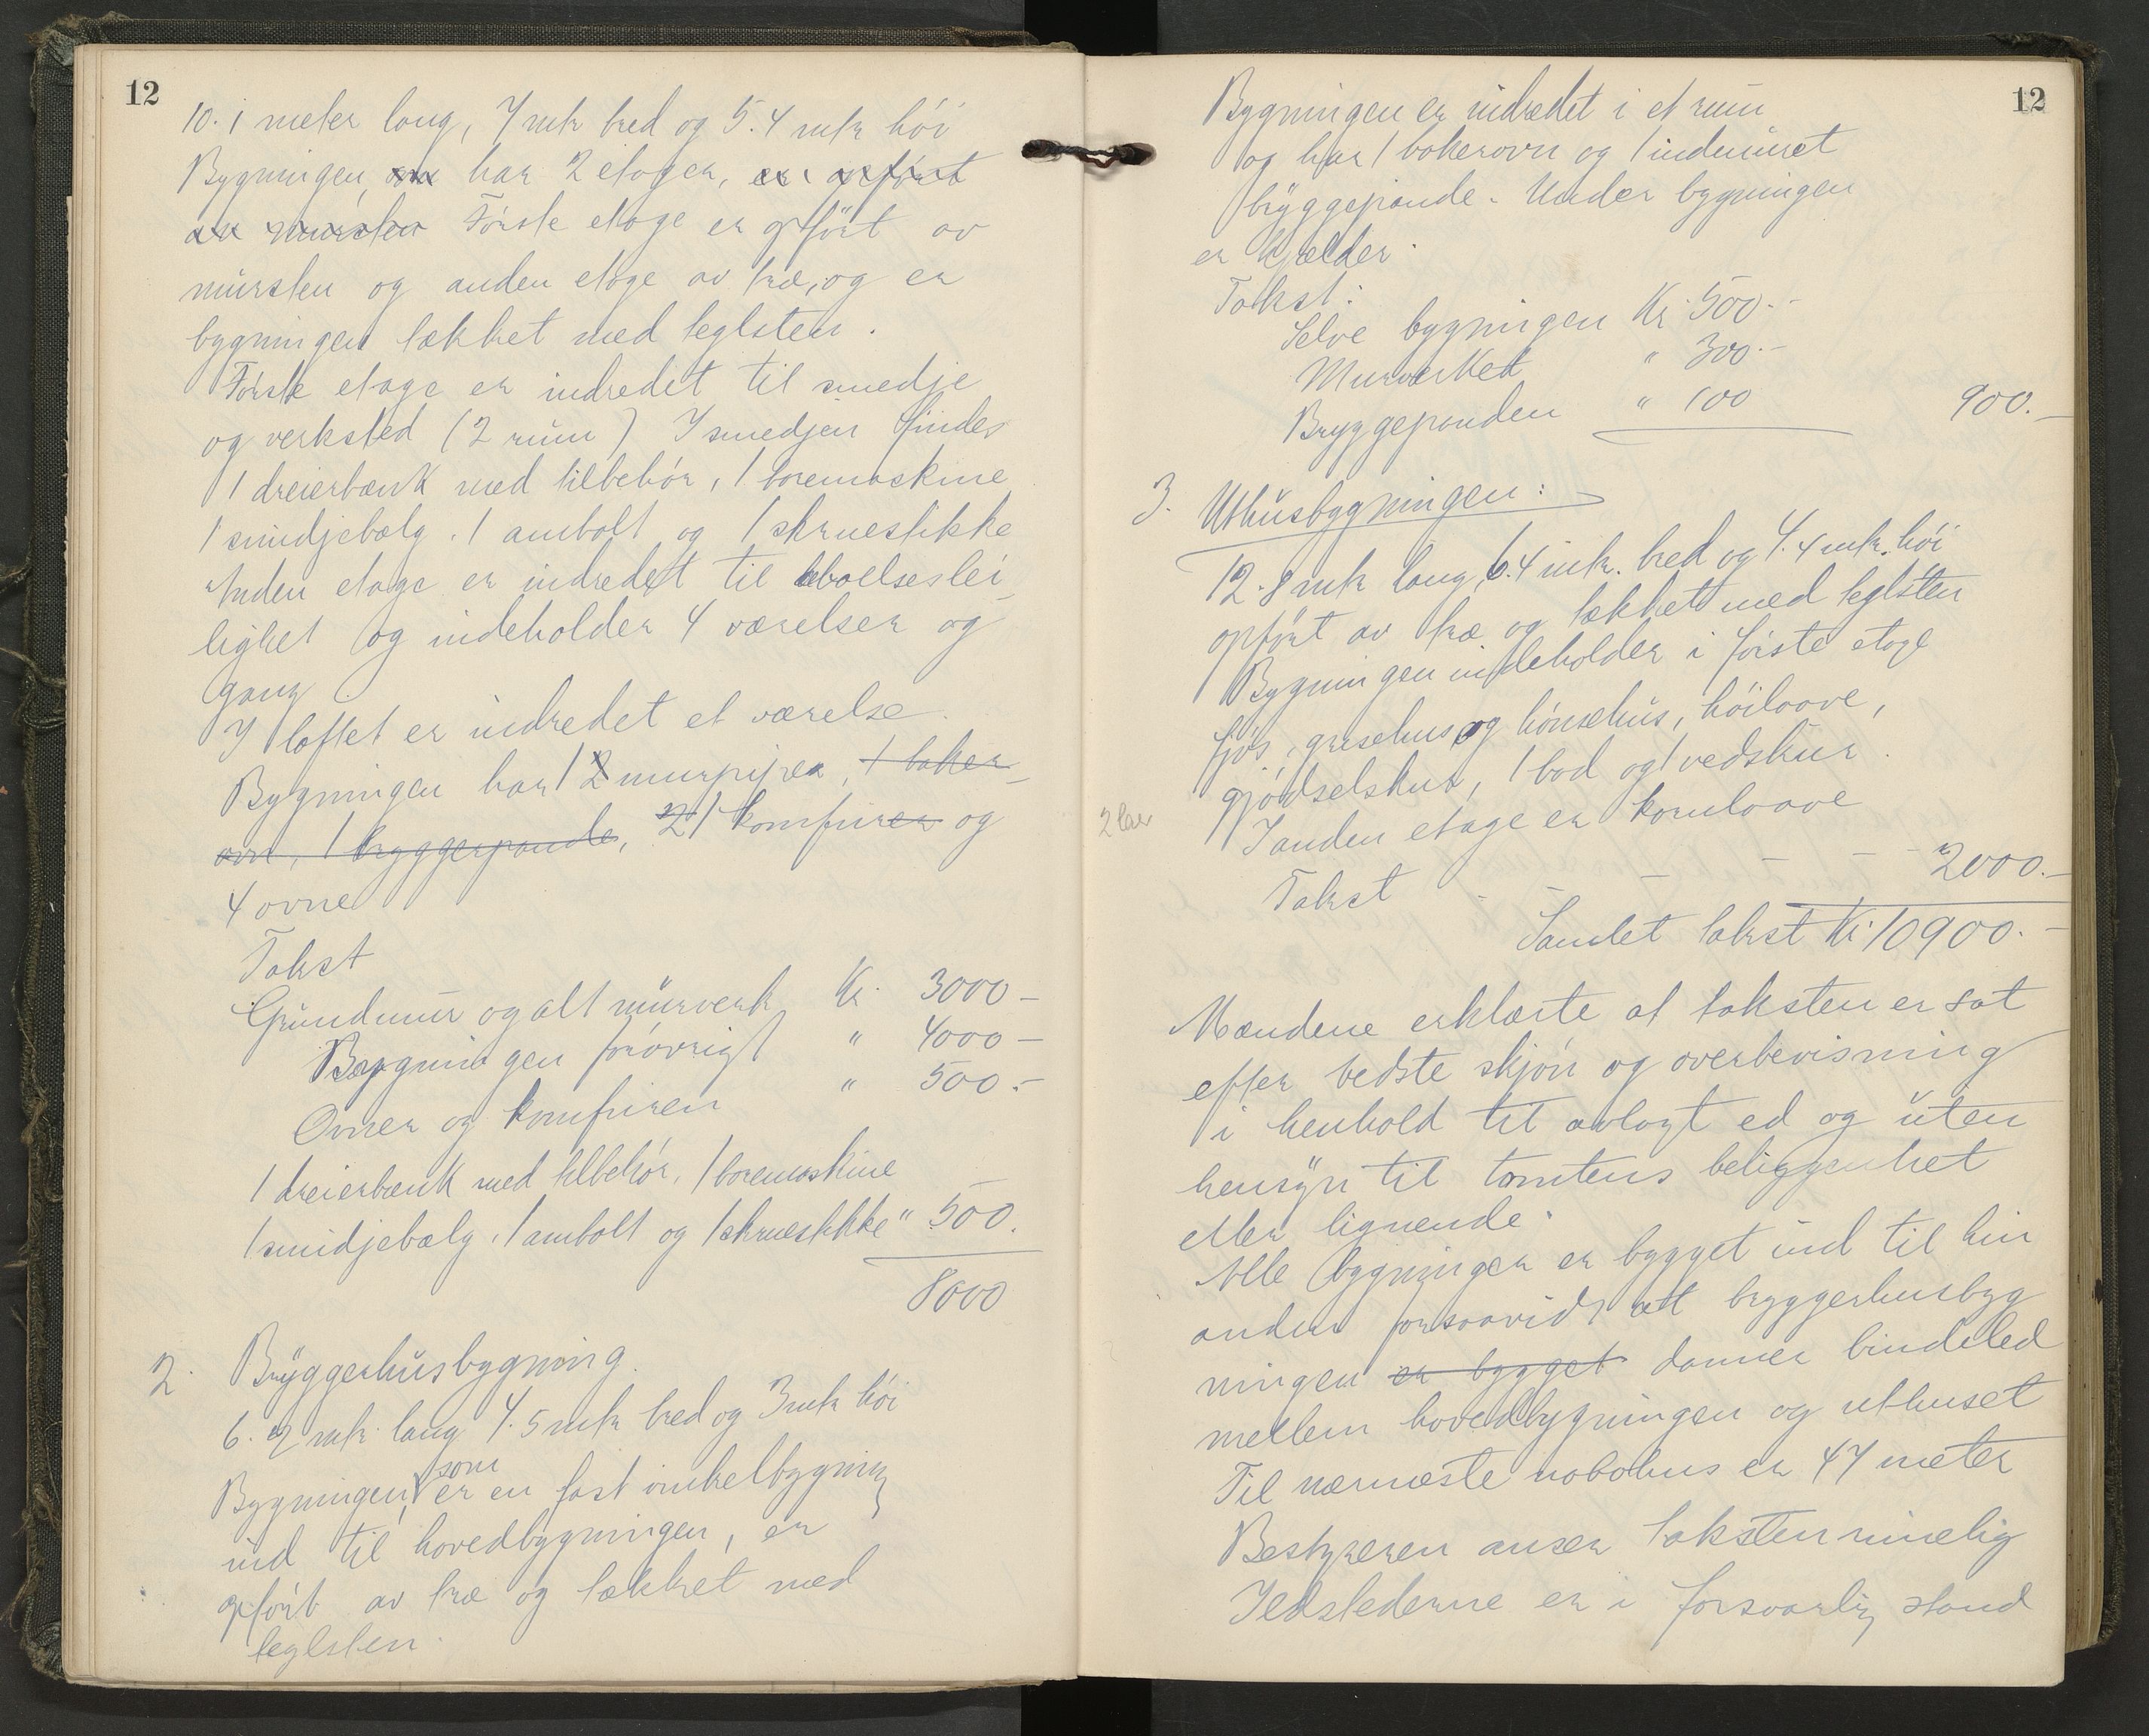 12
10.1 meter lang, 7 mtr bred og 5.4 mtr høi
Bygningen, som har 2 etager, er opført
av mursten Første etage er opført av
mursten og anden etage av træ, og er
bygningen tækket med teglsten.
Første etage er indredet til smedje
og verksted (2 rum) I smedjen findes
1 dreierbænk med tilbehør, 1 boremaskine
1 smidjebælg. 1 ambolt og 1 skruestikke
Anden etage er indredet til beboelseslei-
lighet og indeholder 4 værelser og
gang.
I loftet er indredet et værelse.
Bygningen har 1 2 murpiper, 1 baker-
ovn, 1 bryggerpande, 2 1 komfurer og
4 ovne
Takst
Grundmur og alt murverk Kr. 3000 -
Bygningen forøvrigt " 4000 -
Ovner og komfuren " 500.-
1 dreierbænk med tilbehør, 1 boremaskine
1 smidjebælg, 1 ambolt og 1 skruestikke " 500.-
8000
2. Bryggerhusbygning.
6.2 mtr. lang 4.5 mtr bred og 3 mtr høi
som
Bygningen, er en fast vinkelbygning
ind til hovedbygningen, er
opført av træ og tækket med
teglsten.
12
Bygningen er indredet i et rum
og har 1 bakerovn og 1 indmuret
bryggepande. Under bygningen
er kjælder.
Takst:
Selve bygningen Kr. 500.-
Murverket " 300.-
Bryggepanden " 100 900.-
3. Uthusbygningen:
12.8 mtr lang, 6.4 mtr. bred og 4.4 mtr. høi
opført av træ og tækket med teglsten
Bygningen indeholder i første etage
fjøs, grisehus og hønsehus, høilaave,
gjødselskur, 1 bod og 1 vedskur.
I anden etage er kornlaave
Takst - - - - - 2000.-
Samlet takst Kr. 10900.-
Mændene erklærte at taksten er sat
efter bedste skjøn og overbevisning
i henhold til avlagt ed og uten
hensyn til tomtens beliggenhet
eller lignende.
Alle bygninger er bygget ind til hin
anden forsaavidt at bryggerhusbyg
ningen er bygget danner bindeled
mellem hovedbygningen og uthuset
Til nærmeste nabohus er 47 meter
Bestyreren anser taksten rimelig
Ildstederne er i forsvarlig stand